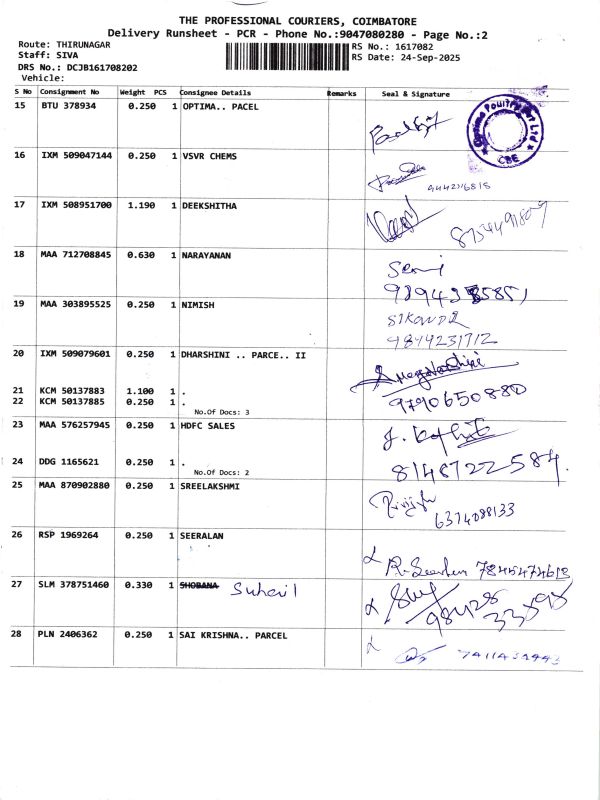 THE PROFESSIONAL COURIERS, COIMBATORE
Delivery Runsheet - PCR - Phone No.:9047080280 - Page No.:2
Route: THIRUNAGAR
RS No.: 1617082
Staff: SIVA
RS Date: 24-Sep-2025
DRS No.: DCJB161708202
Vehicle:
S No Consignment No Weight PCS Consignee Details Remarks Seal & Signature
15 BTU 378934 0.250 1 OPTIMA.. PACEL
Optima Poultry Pvt Ltd
CBE
16 IXM 509047144 0.250 1 VSVR CHEMS
17 IXM 508951700 1.190 1 DEEKSHITHA
18 MAA 712708845 0.630 1 NARAYANAN
19 MAA 303895525 0.250 1 NIMISH
9844231712
20 IXM 509079601 0.250 1 DHARSHINI .. PARCE.. II
21 KCM 50137883 1.100 1 .
9790650880
22 KCM 50137885 0.250 1 .
No.Of Docs: 3
23 MAA 576257945 0.250 1 HDFC SALES
24 DDG 1165621 0.250 1 .
8148722584.
No.Of Docs: 2
25 MAA 870902880 0.250 1 SREELAKSHMI
6374088133
26 RSP 1969264 0.250 1 SEERALAN
7845474613
27 SLM 378751460 0.330 1 SHOBANA Suhail
98428
33598
28 PLN 2406362 0.250 1 SAI KRISHNA.. PARCEL